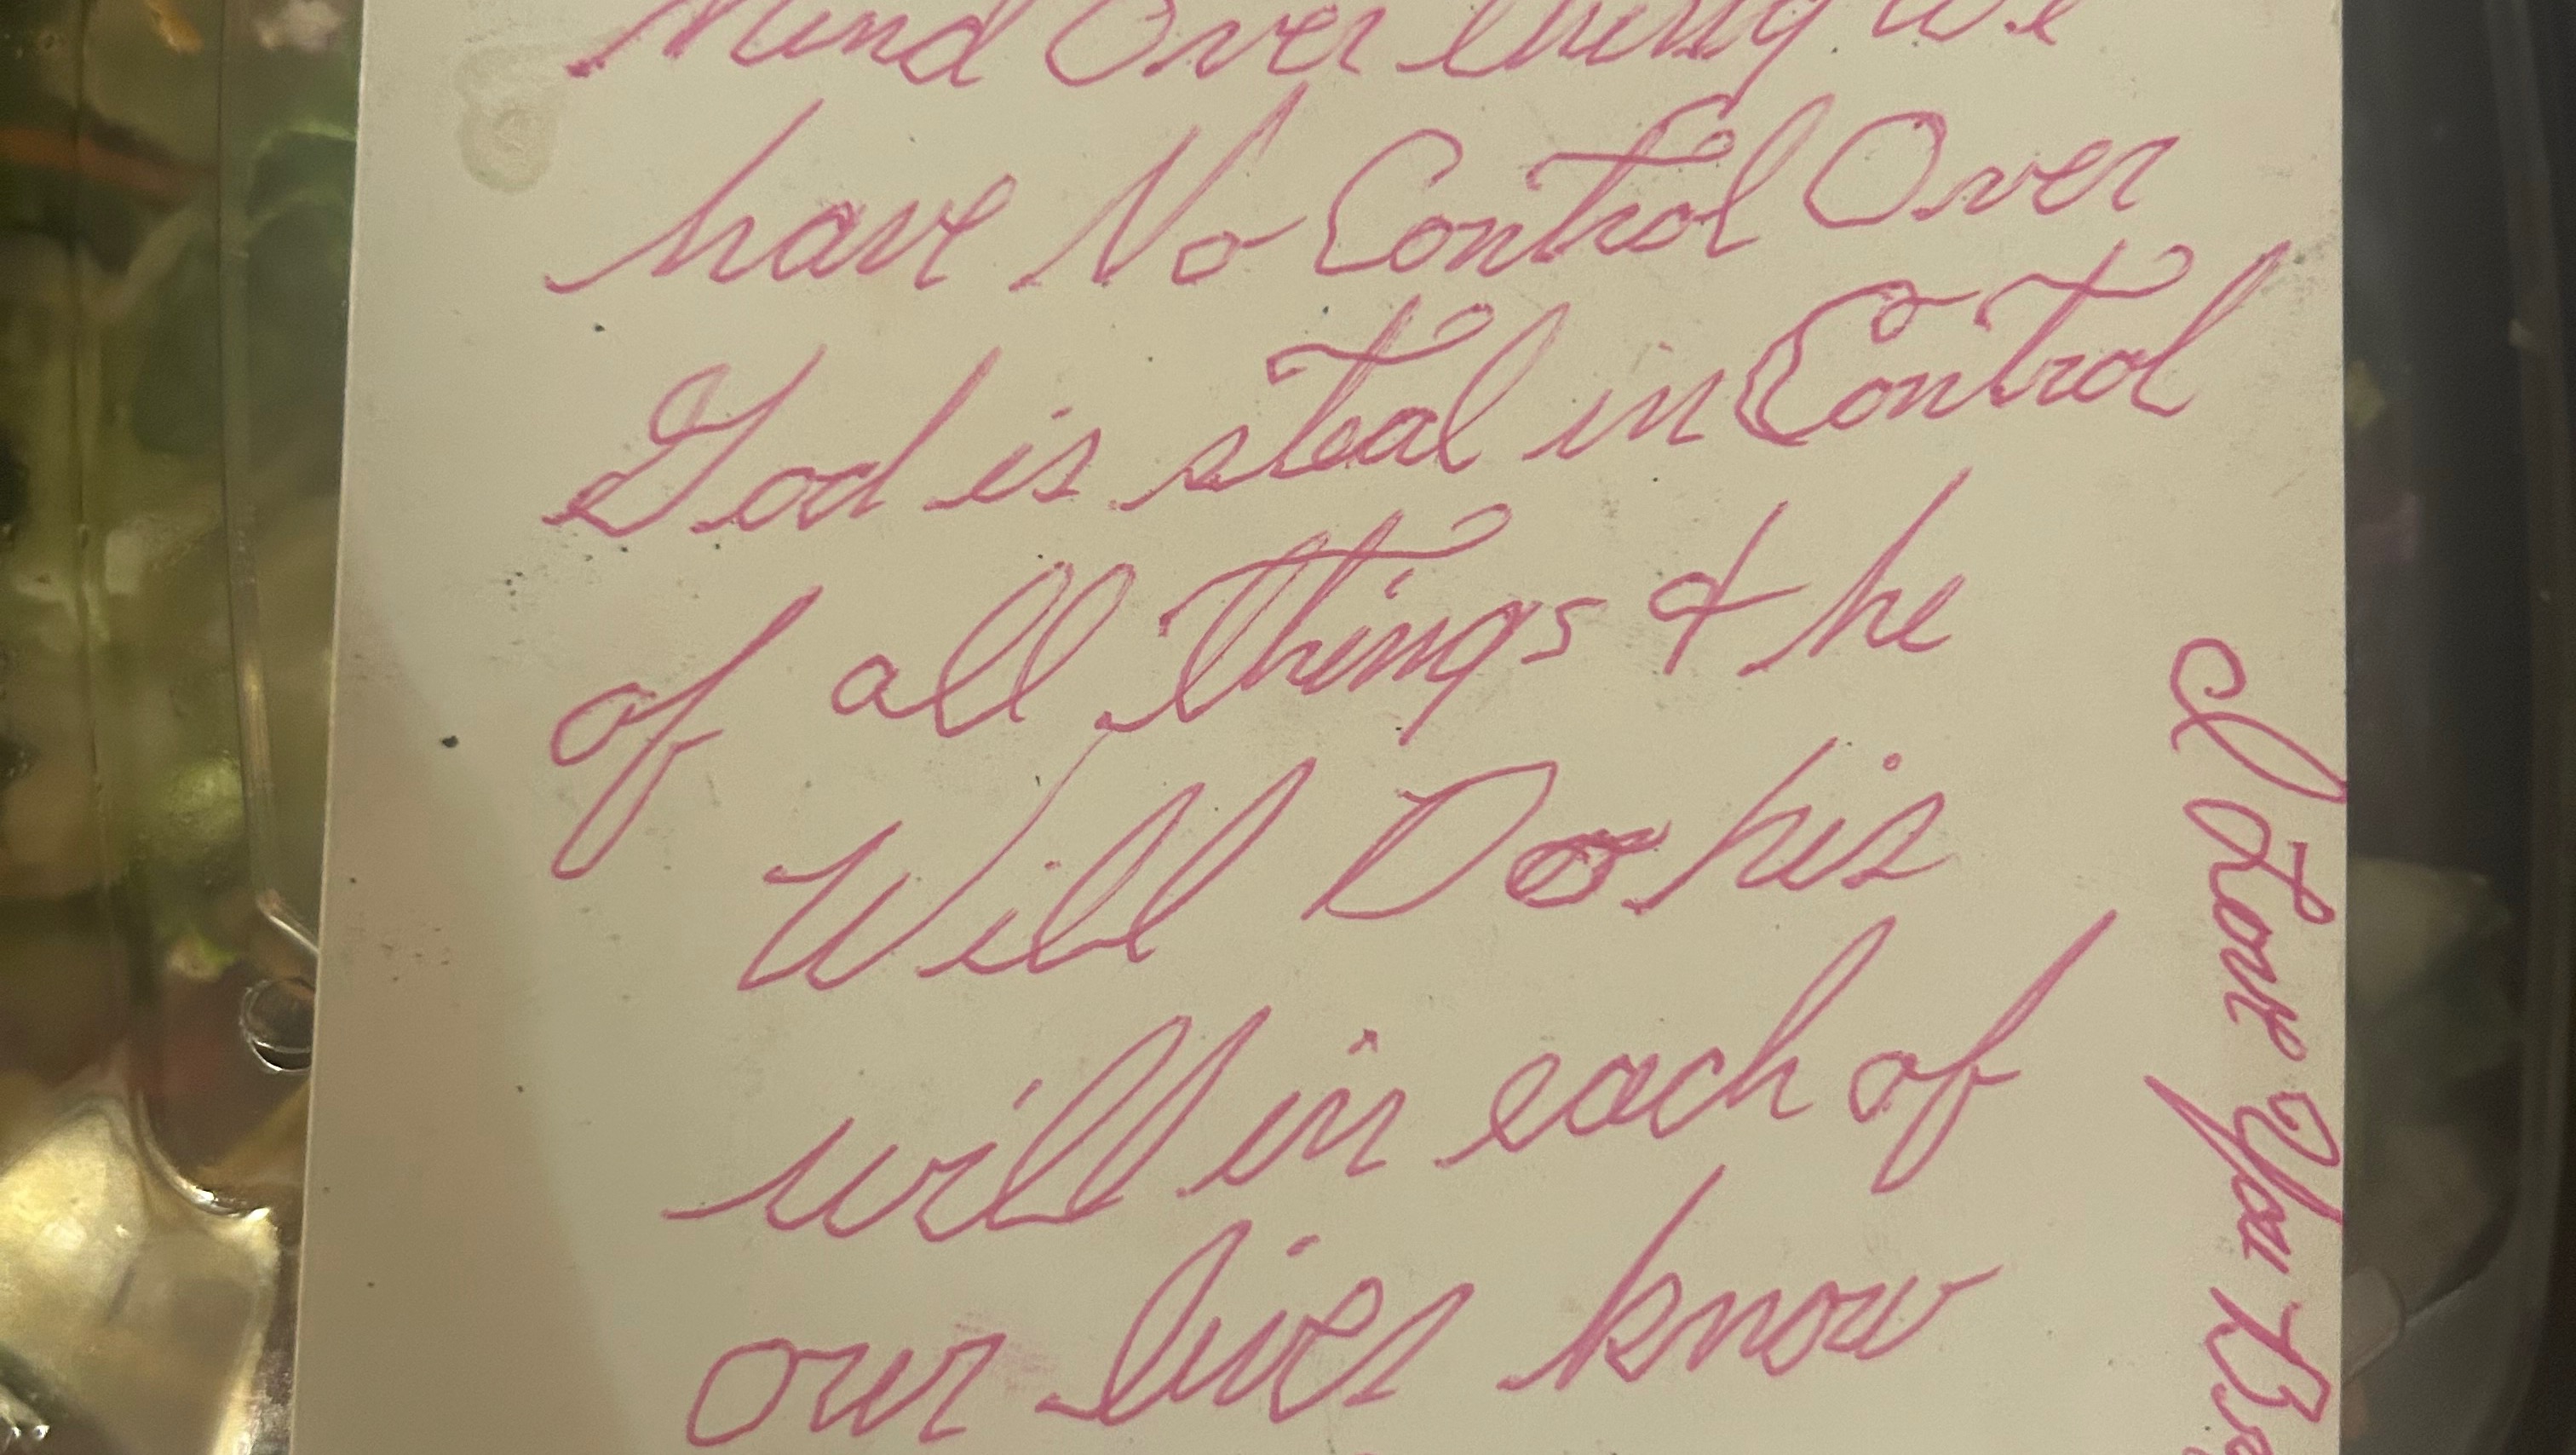 Mind Over thing we
have No Control Over
God is steal in Control
of all things & he
Will Do his
will in each of
our lives know
I Love You